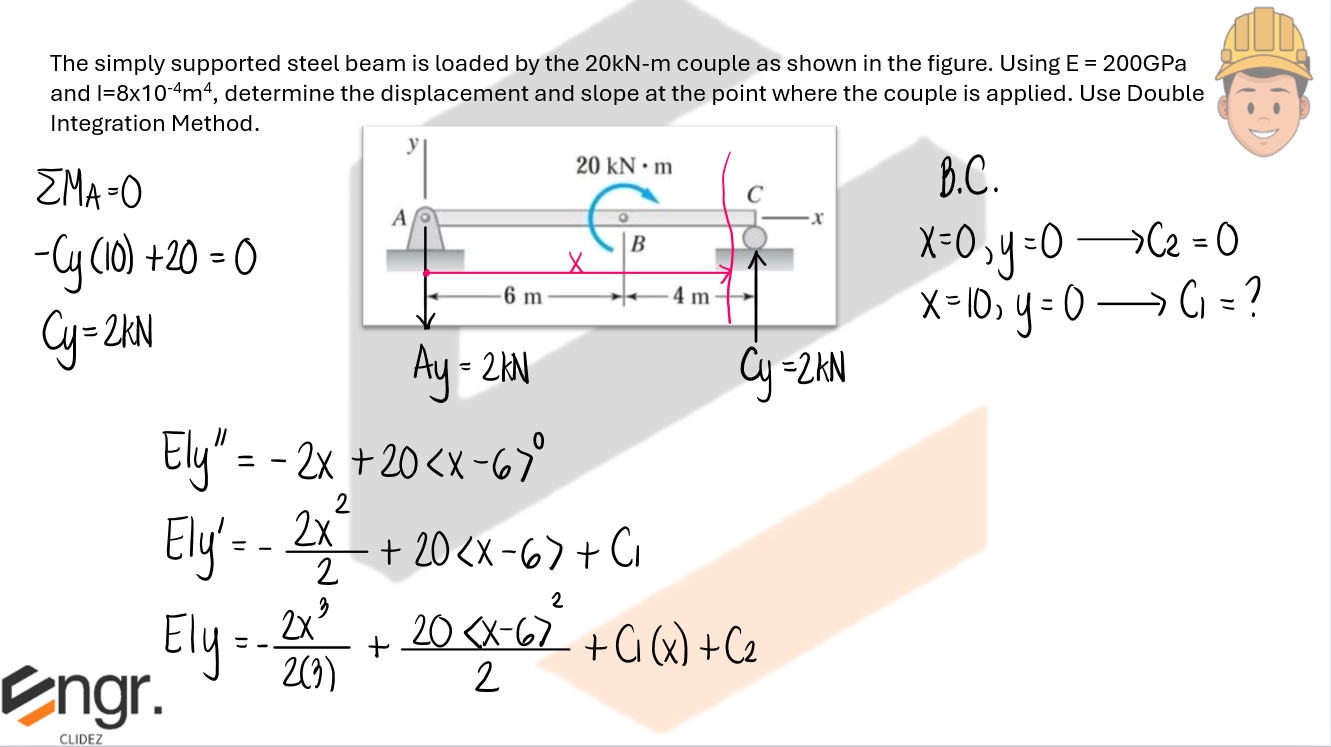 The simply supported steel beam is loaded by the 20kN-m couple as shown in the figure. Using E = 200GPa
and I=8x10⁻⁴m⁴, determine the displacement and slope at the point where the couple is applied. Use Double
Integration Method.
ΣMA=0
-Cy(10) +20 = 0
Cy=2kN
y
20 kN · m
A
C
x
B
x
6 m
4 m
Ay = 2kN
Cy =2kN
B.C.
x=0, y=0 → C2 = 0
x=10, y=0 → C1 = ?
EIy″ = -2x +20<x-6>⁰
EIy′ = - 2x²/2 + 20<x-6> + C1
EIy = - 2x³/2(3) + 20<x-6>²/2 + C1(x) + C2
Engr.
CLIDEZ